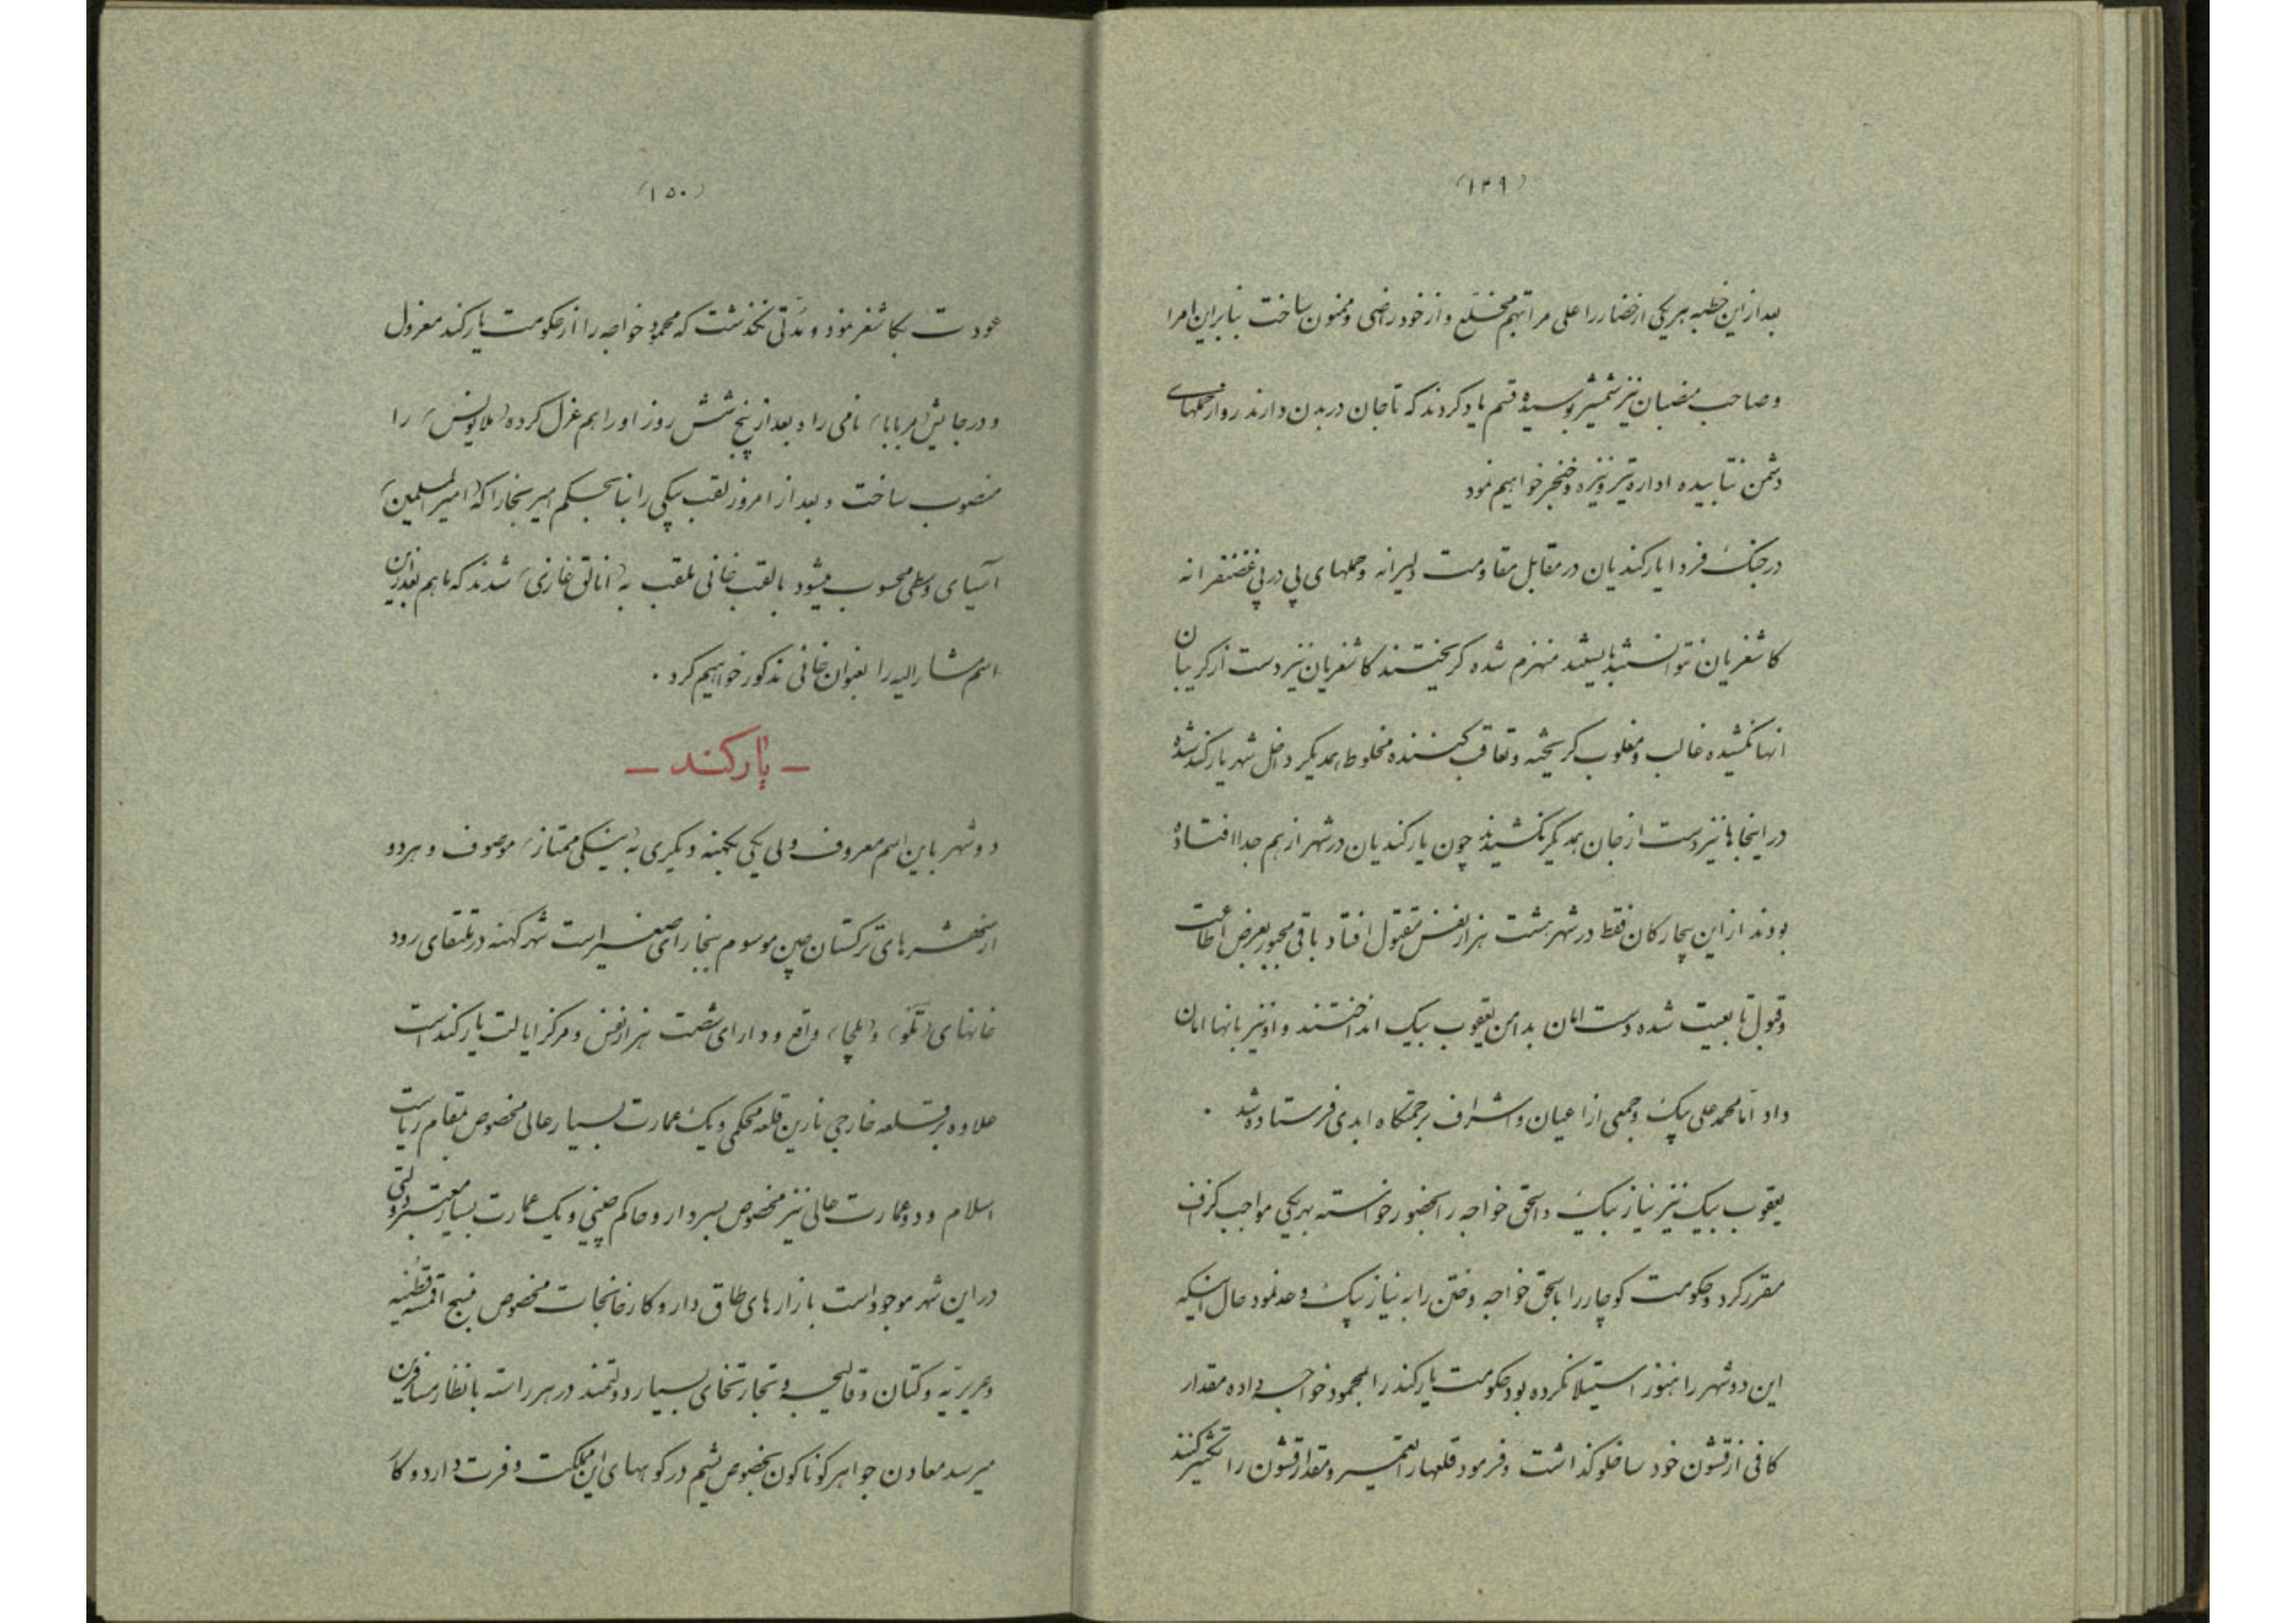 (۱۴۹)
بعد ازاین خطبه بهریکی ازحضار را علی مراتبهم مخلّع و از خود راضی و ممنون ساخت بنابراین امرا
وصاحب منصبان نیز شمشیر بوسیده قسم یاد کردند که تاجان در بدن دارند رو از حملهای
دشمن نتابیده اداره تیر و نیزه و خنجر خواهیم نمود
درجنک فردا یارکندیان در مقابل مقاومت دلیرانه وحملهای پی در پی غضنفرانه
کاشغریان نتوانستند بایستند منهزم شده کریختند کاشغریان نیز دست از کریبان
انها نکشیده غالب و مغلوب کریخته و تعاقب کننده مخلوط بهمدیکر داخل شهر یارکند شده
در اینجاها نیز دست از جان همدیکر نکشیدند چون یارکندیان در شهر از هم جدا افتاده
بودند از این بیچارکان فقط در شهر هشت هزار نفس مقتول افتاد باقی مجبور بعرض اطاعت
وقبول تابعیت شده دست امان بدامن یعقوب بیک انداختند و او نیز بانها امان
داد اما محمد علی بیک وجمعی از اعیان و اشراف برحمتکاه ابدی فرستاده شد ۰
یعقوب بیک نیز نیاز بیک و اسحق خواجه را بحضور خواسته بهریکی مواجب کزاف
مقرر کرد و حکومت کوچار را باسحق خواجه و ختن را به نیاز بیک وعد نمود حال اینکه
این دو شهر را هنوز استیلا نکرده بود حکومت یارکند را بمحمود خواجه داده مقدار
کافی از قشون خود ساخلو کذاشت و فرمود قلعهارا تعمیر و مقدار قشون را تکثیر کنند
(۱۵۰)
عودت بکاشغر نمود و مدّتی نکذشت که محمود خواجه را از حکومت یارکند معزول
و درجایش (میربابا) نامی را و بعد از پنج شش روز او را هم عزل کرده (ملا یونس) را
منصوب ساخت و بعد از امروز لقب بیکی را بنا بحکم امیر بخارا که (امیر المسلمین)
آسیای وسطی محسوب میشود بالقب خانی ملقب به (اتالق غازی) شدند که ما هم بعد ازین
اسم مشار الیه را بعنوان خانی مذکور خواهیم کرد ۰
– یارکند –
دو شهر باین اسم معروف ولی یکی بکهنه و دیکری به (ینکی ممتاز) موصوف و هردو
از شهرهای ترکستان چین موسوم ببخارای صغیر است شهر کهنه در ملتقای رود
خانهای (تکو) و (یلچا) واقع و دارای شصت هزار نفس و مرکز ایالت یارکند است
علاوه بر قلعه خارجی نارین قلعه محکمی و یک عمارت بسیار عالی مخصوص بمقام ریاست
اسلام و دو عمارت عالی نیز مخصوص بسردار و حاکم چینی و یک عمارت بسیار معتبر دولتی
در این شهر موجود است بازارهای طاق دار و کارخانجات مخصوص نسج اقمشه قطنیه
وحریریّه و کتان و قالیچه و تجارتخای بسیار دولتمند در هر راسته بانظار مسافرین
میرسد معادن جواهر کوناکون بخصوص یشم در کوههای این مملکت وفرت دارد و کاه